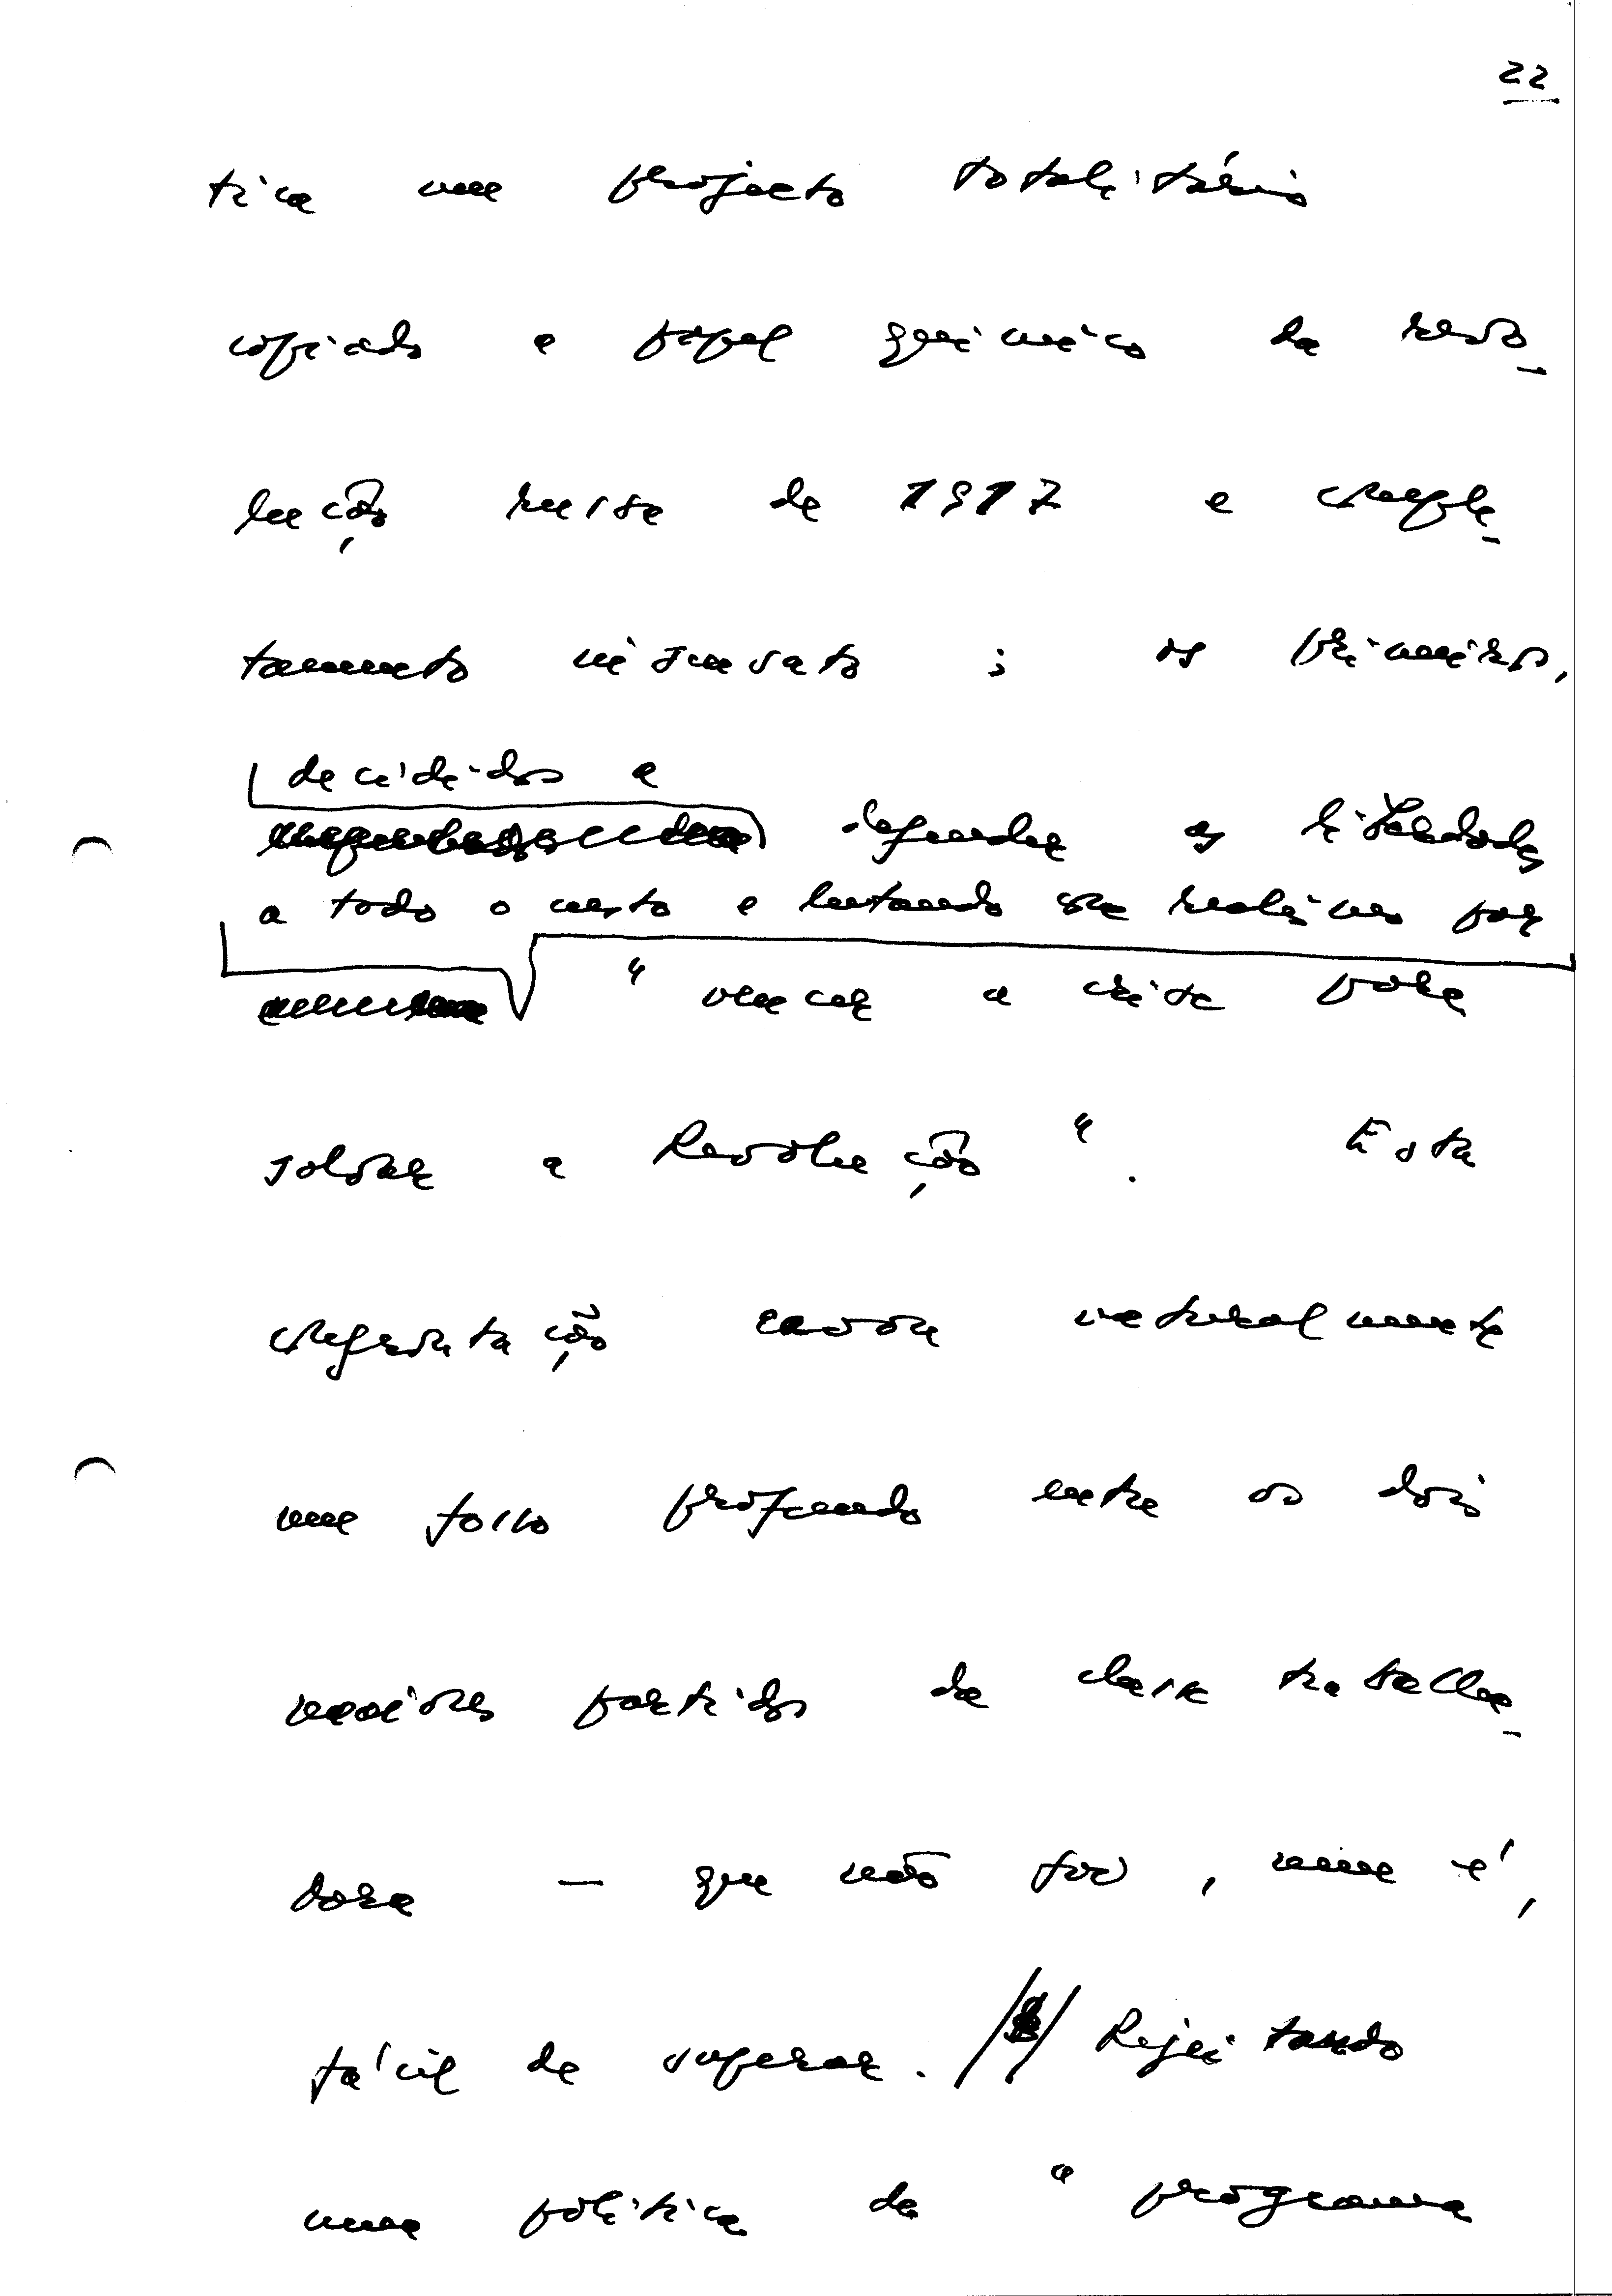 22
tica um projecto totalitário
copiado a papel químico da revo-
lução russa de 1917 e comple-
tamente insensato; os primeiros,
decididos a
defender as liberdades
a todo o custo e lutando
por
"vencer a crise para
salvar a Revolução". Esta
confrontação cavou naturalmente
um fosso profundo entre os dois
maiores partidos da classe trabalha-
dora — que não foi, nem é,
fácil de superar. // Rejeitando
uma política de "programa